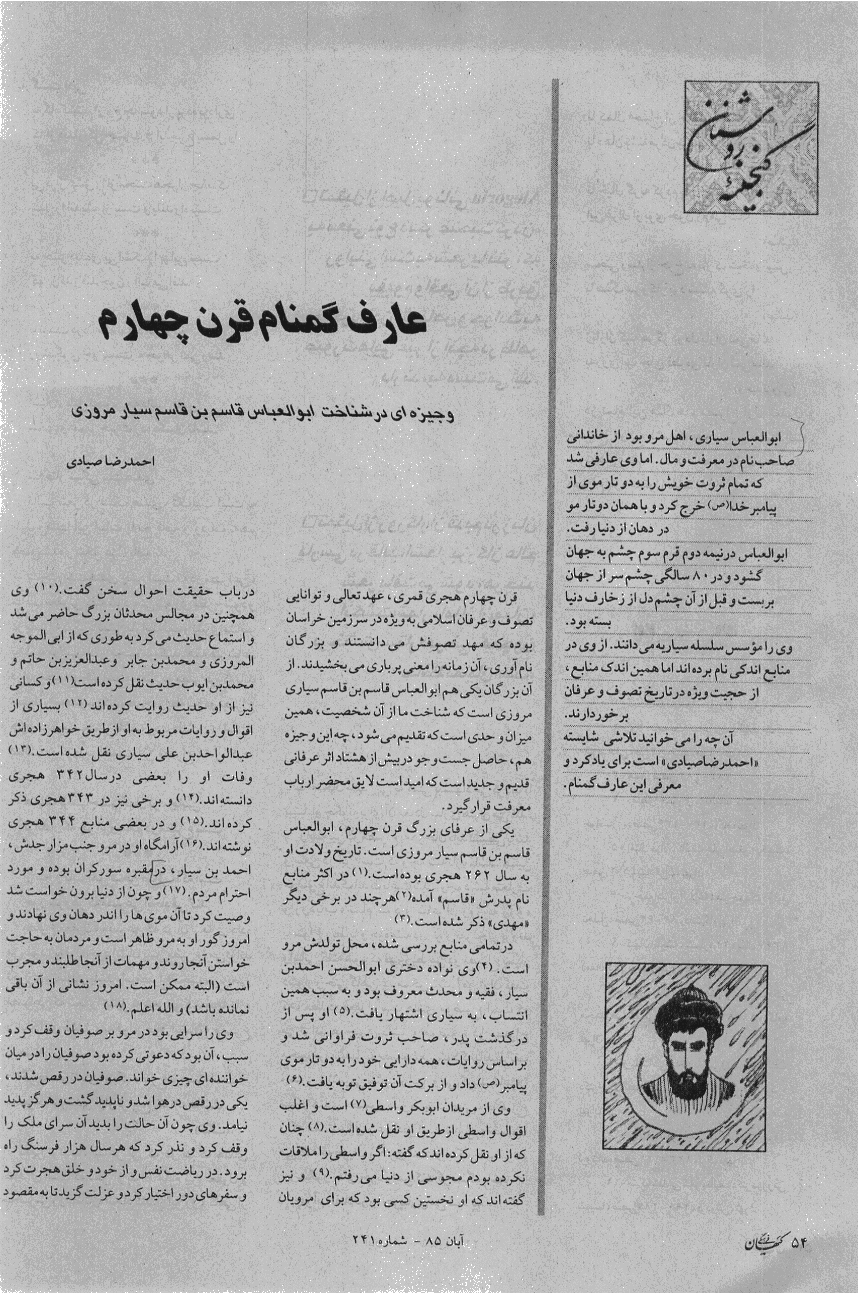 گنجینۀ
روشنان
عارف گمنام قرن چهارم
وجیزه ای در شناخت ابوالعباس قاسم بن قاسم سیار مروزی
احمدرضا صیادی
ابوالعباس سیاری، اهل مرو بود از خاندانی
صاحب نام در معرفت و مال. اما وی عارفی شد
که تمام ثروت خویش را به دو تار موی از
پیامبر خدا(ص) خرج کرد و با همان دو تار مو
در دهان از دنیا رفت.
ابوالعباس در نیمه دوم قرم سوم چشم به جهان
گشود و در ۸۰ سالگی چشم سر از جهان
بربست و قبل از آن چشم دل از زخارف دنیا
بسته بود.
وی را مؤسس سلسله سیاریه می دانند. از وی در
منابع اندکی نام برده اند اما همین اندک منابع،
از حجیت ویژه در تاریخ تصوف و عرفان
برخوردارند.
آن چه را می خوانید تلاشی شایسته
«احمدرضاصیادی» است برای یادکرد و
معرفی این عارف گمنام.
قرن چهارم هجری قمری، عهد تعالی و توانایی
تصوف و عرفان اسلامی به ویژه در سرزمین خراسان
بوده که مهد تصوفش می دانستند و بزرگان
نام آوری، آن زمانه را معنی پرباری می بخشیدند. از
آن بزرگان یکی هم ابوالعباس قاسم بن قاسم سیاری
مروزی است که شناخت ما از آن شخصیت، همین
میزان و حدی است که تقدیم می شود، چه این وجیزه
هم، حاصل جست و جو در بیش از هشتاد اثر عرفانی
قدیم و جدید است که امید است لایق محضر ارباب
معرفت قرار گیرد.
یکی از عرفای بزرگ قرن چهارم، ابوالعباس
قاسم بن قاسم سیار مروزی است. تاریخ ولادت او
به سال ۲۶۲ هجری بوده است.(۱) در اکثر منابع
نام پدرش «قاسم» آمده(۲)هرچند در برخی دیگر
«مهدی» ذکر شده است.(۳)
در تمامی منابع بررسی شده، محل تولدش مرو
است. (۴)وی نواده دختری ابوالحسن احمدبن
سیار، فقیه و محدث معروف بود و به سبب همین
انتساب، به سیاری اشتهار یافت.(۵) او پس از
درگذشت پدر، صاحب ثروت فراوانی شد و
براساس روایات، همه دارایی خود را به دو تار موی
پیامبر(ص) داد و از برکت آن توفیق توبه یافت.(۶)
وی از مریدان ابوبکر واسطی(۷) است و اغلب
اقوال واسطی از طریق او نقل شده است.(۸) چنان
که از او نقل کرده اند که گفته: اگر واسطی را ملاقات
نکرده بودم مجوسی از دنیا می رفتم.(۹) و نیز
گفته اند که او نخستین کسی بود که برای مرویان
در باب حقیقت احوال سخن گفت.(۱۰) وی
همچنین در مجالس محدثان بزرگ حاضر می شد
و استماع حدیث می کرد به طوری که از ابی الموجه
المروزی و محمدبن جابر وعبدالعزیزبن حاتم و
محمدبن ایوب حدیث نقل کرده است(۱۱)و کسانی
نیز از او حدیث روایت کرده اند(۱۲) بسیاری از
اقوال و روایات مربوط به او از طریق خواهرزاده اش
عبدالواحدبن علی سیاری نقل شده است.(۱۳)
وفات او را بعضی درسال۳۴۲ هجری
دانسته اند.(۱۴) و برخی نیز در ۳۴۳ هجری ذکر
کرده اند.(۱۵) و در بعضی منابع ۳۴۴ هجری
نوشته اند.(۱۶)آرامگاه او در مرو جنب مزار جدش،
احمد بن سیار، در مقبره سورکران بوده و مورد
احترام مردم. (۱۷)و چون از دنیا برون خواست شد
وصیت کرد تا آن موی ها را اندر دهان وی نهادند و
امروز گور او به مرو ظاهر است و مردمان به حاجت
خواستن آنجا روند و مهمات از آنجا طلبند و مجرب
است (البته ممکن است. امروز نشانی از آن باقی
نمانده باشد) و الله اعلم.(۱۸)
وی را سرایی بود در مرو بر صوفیان وقف کرد و
سبب، آن بود که دعوتی کرده بود صوفیان را در میان
خواننده ای چیزی خواند. صوفیان در رقص شدند،
یکی در رقص در هوا شد و ناپدید گشت و هرگز پدید
نیامد. وی چون آن حالت را بدید آن سرای ملک را
وقف کرد و نذر کرد که هر سال هزار فرسنگ راه
برود. در ریاضت نفس و از خود و خلق هجرت کرد
و سفرهای دور اختیار کرد و عزلت گزید تا به مقصود
۵۴ کیهان فرهنگی
آبان ۸۵ - شماره ۲۴۱